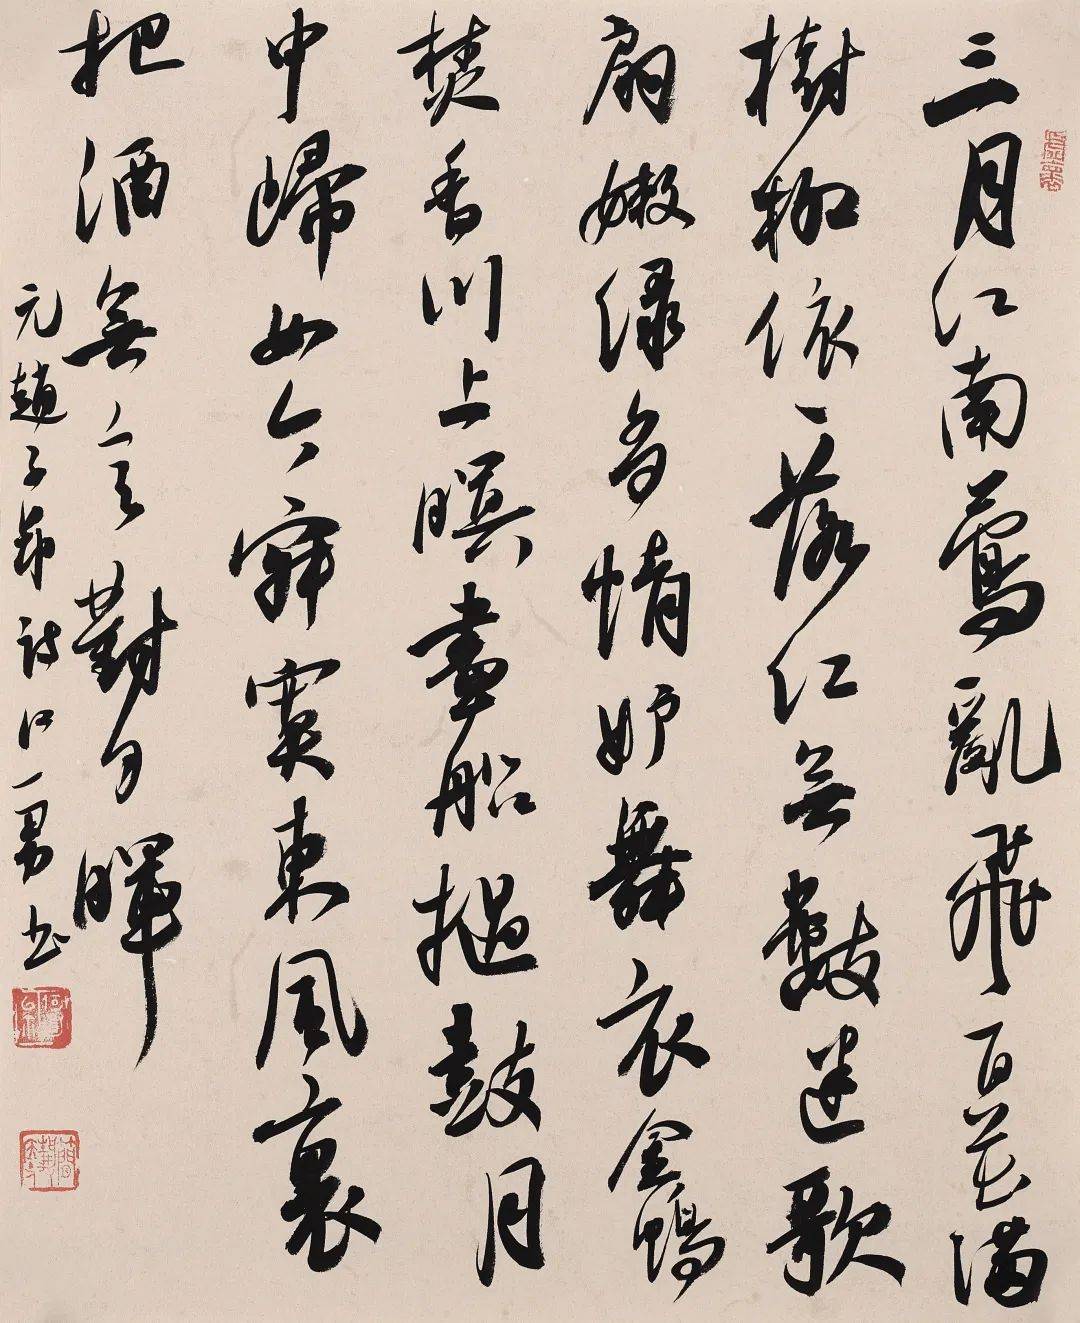 三月江南鶯亂飛百花滿
樹柳依〻落紅無數迷歌
扇嫩綠多情妒舞衣金鴨
焚香川上暝畫船撾鼓月
中歸如今寂寞東風裏
把酒無言對夕暉
元趙子昂詩江一男书